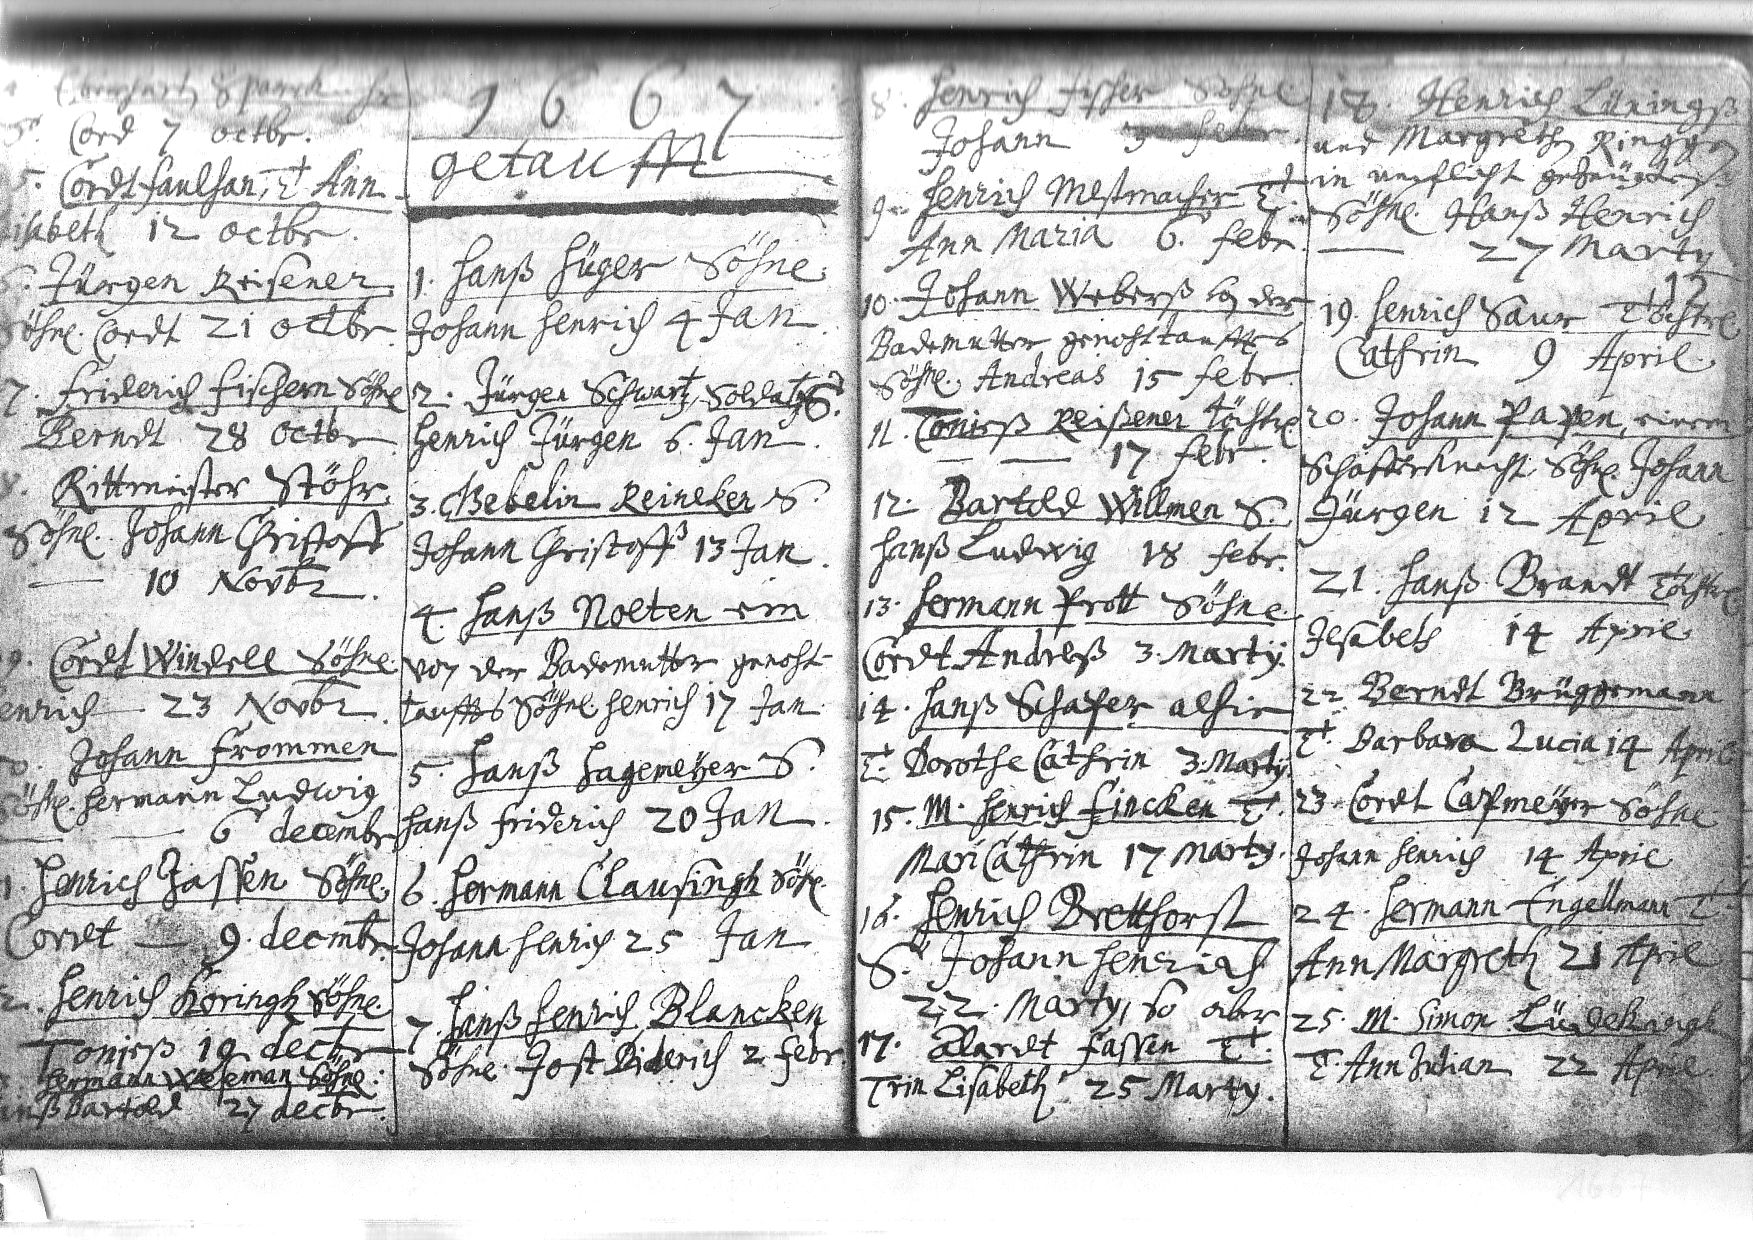 Eberhartz Sparckuhr
Cord 7 octbr.
5. Cordt faulhan, T. Ann
lisabeth 12 octbr.
6. Jürgen Reisener
Söhnl. Cordt 21 octbr.
7. Friderich Fischern Söhnl
Berndt 28 octbr
8. Rittmeister Stöhr
Söhnl. Johann Christoff
— 10 Novbr.
9. Cordt Windell Söhnl.
enrich — 23 Novbr.
Johann Frommen
Söhnl. Hermann Ludwig
— — 6 decembr
1. Henrich Jassen Söhnl.
Cordt — 9. decmbr.
2. Henrich Koringh Söhnl.
Tonieß 19 decbr
Hermann Weseman Söhnl.
anß Bartold 27 decbr.
1667
getaufft
1. Hanß Hüger Söhnl.
Johann Henrich 4 Jan.
2. Jürgen Schwartz, Soldat, S.
Henrich Jürgen 6. Jan.
3. Gebelin Reineken S.
Johann Christoff 13 Jan.
4. Hanß Nolten ein
von der Bademutter genoht-
taufftes Söhnl. Henrich 17 Jan
5. Hanß Hagemeyer S.
Hanß Friderich 20 Jan.
6. Hermann Clausingh Söhnl.
Johann Henrich 25 Jan
7. Hanß Henrich Blancken
Söhnl. Jost Diderich 2 Febr.
8. Henrich Fischer Söhnl
Johann 3 Febr.
9. Henrich Mestmacher T.
Ann Maria 6. Febr.
10. Johann Weberß von der
Bademutter genohttaufftes
Söhnl. Andreas 15 Febr.
11. Tonieß Reißener Töchtrl
— — 17 Febr.
12. Bartold Willmen S.
Hanß Ludwig 18 Febr.
13. Hermann Prott Söhnl.
Cordt Andreß 3. Martÿ.
14. Hanß Schafer alhie
T. Dorothe Cathrin 3. Martÿ.
15. M. Henrich Fincken T.
Mari Cathrin 17 Marty.
16. Henrich Bretthorst
S. Johann Henrich
22. Marty, so aber
17. Alardt Fassen T.
Trin Lisabeth 25 Marty.
18. Henrich Lüningß
und Margrethen Ringgen
in unpflicht gezeügtes
Söhnl. Hanß Henrich
— 27 Marty
19. Henrich Saur Töchtrl
Cathrin 9 April.
20. Johann Papen, einem
Schäfferknecht Söhnl. Johann
Jürgen 12 April
21. Hanß Brandt Töchtrl
Ilsabeth 14 April
22 Berndt Brüggemann
T. Barbara Lucia 14 April
23 Cordt Capmeyer Söhnl
Johann Henrich 14 April
24. Hermann Engellmann T.
Ann Margreth 21 April
25. M. Simon Lüdekingh
T. Ann Julian 22 April.